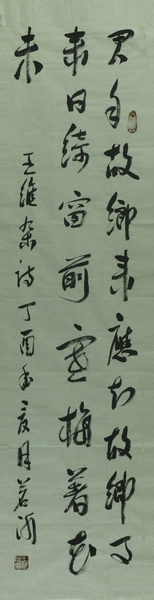 君自故鄉來應知故鄉事
來日綺窗前寒梅著花
未
王維雜詩丁酉年夏月